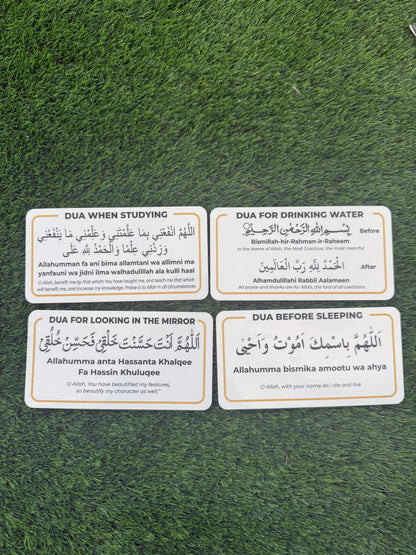 DUA WHEN STUDYING
اَللّٰهُمَّ انْفَعْنِي بِمَا عَلَّمْتَنِي وَعَلِّمْنِي مَا يَنْفَعُنِي
وَزِدْنِي عِلْمًا وَالْحَمْدُ لِلّٰهِ عَلَى
Allahumman fa ani bima allamtani wa allimni ma
yanfauni wa jidni ilma walhadulillah ala kulli haal
O Allah, benefit me by that which You have taught me, and teach me that which
will benefit me, and increase my knowledge. Praise is to Allah in all circumstances
DUA FOR DRINKING WATER
بِسْمِ اللهِ الرَّحْمٰنِ الرَّحِيْمِ Before
Bismillah-hir-Rahman-ir-Raheem
In the Name of Allah, the Most Gracious, the most merciful
اَلْحَمْدُ لِلّٰهِ رَبِّ الْعَالَمِيْنَ After
Alhamdulillahi Rabbil Aalameen
All praise and thanks are for Allah, the lord of all creations
DUA FOR LOOKING IN THE MIRROR
اَللّٰهُمَّ اَنْتَ حَسَّنْتَ خَلْقِيْ فَحَسِّنْ خُلُقِيْ
Allahumma anta Hassanta Khalqee
Fa Hassin Khuluqee
O Allah, You have beautified my features,
so beautify my character as well."
DUA BEFORE SLEEPING
اَللّٰهُمَّ بِاسْمِكَ اَمُوْتُ وَاَحْيٰى
Allahumma bismika amootu wa ahya
O Allah, with your name do i die and live